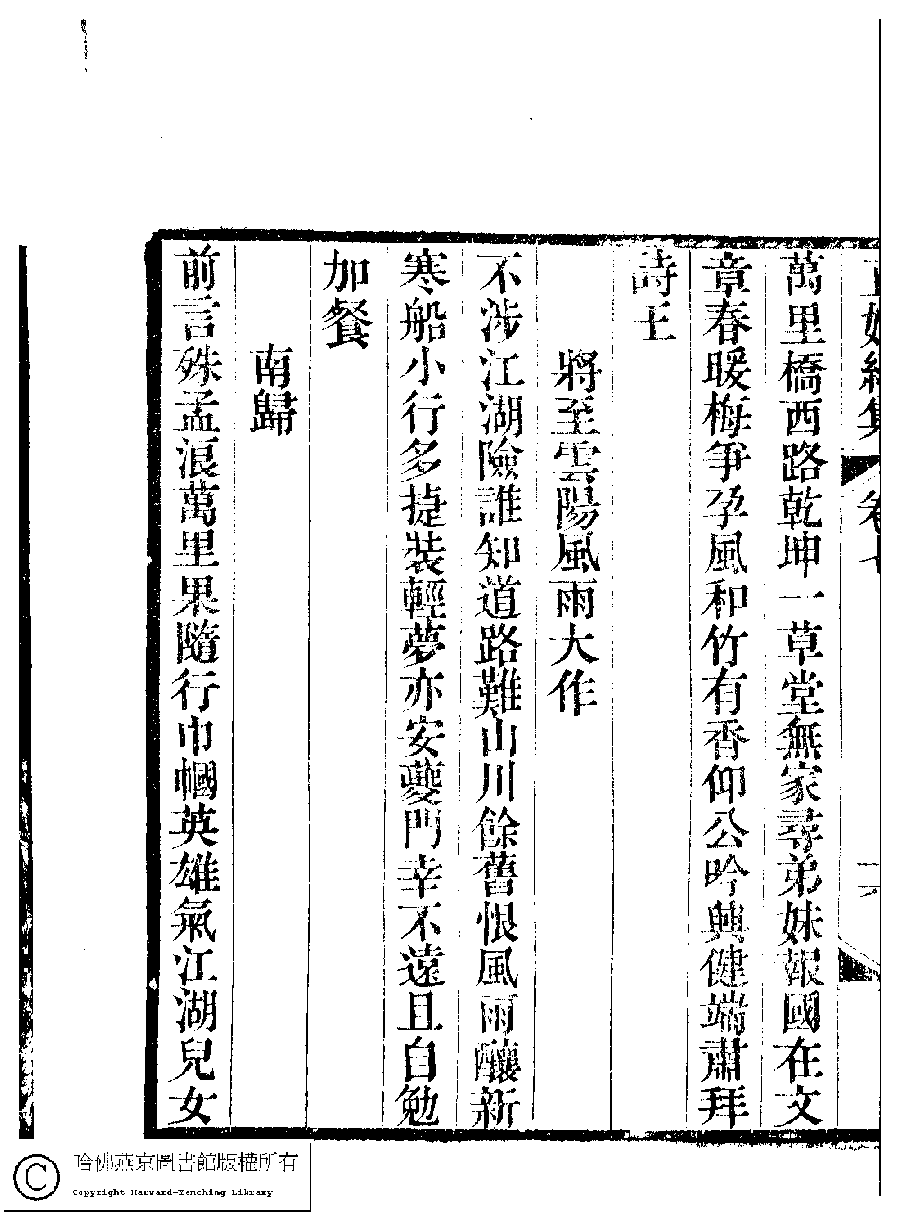 萬里橋西路乾坤一草堂無家尋弟妹報國在文
章春暖梅爭孕風和竹有香仰公吟興健端肅拜
詩王
將至雲陽風雨大作
不涉江湖險誰知道路難山川餘舊恨風雨釀新
寒船小行多捷裝輕夢亦安夔門幸不遠且自勉
加餐
南歸
前言殊孟浪萬里果隨行巾幗英雄氣江湖兒女
哈佛燕京圖書館版權所有
Copyright Harvard-Yenching Library